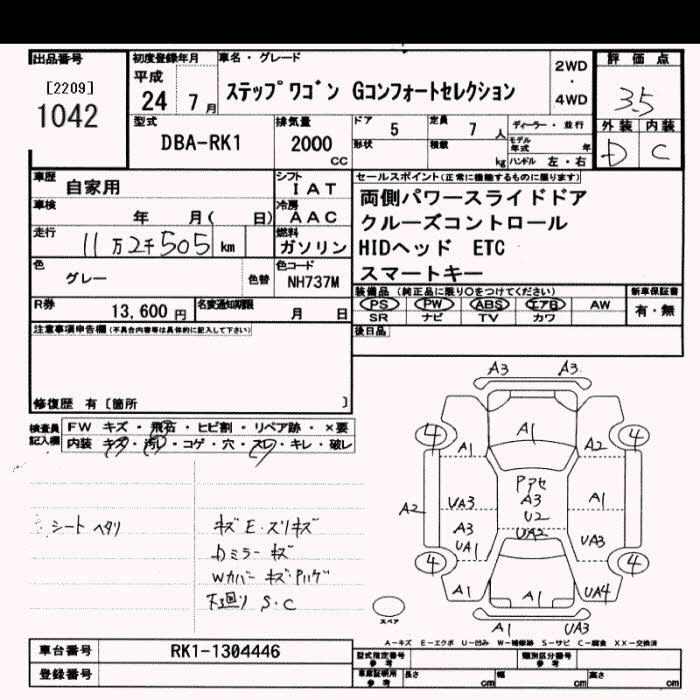 出品番号
[2209]
1042
初度登録年月
平成
24 7月
車名・グレード
ステップワゴン Gコンフォートセレクション
2WD
・
4WD
評価点
3.5
外装 内装
D C
型式
DBA-RK1
排気量
2000
cc
ドア
5
定員
7 人
ディーラー・並行
形状
積載
kg
モデル年式 年
ハンドル 左・右
車歴
自家用
シフト
IAT
車検
年 月( 日)
冷房
AAC
走行
11万2千505 km
燃料
ガソリン
色
グレー
色替
色コード
NH737M
R券
13,600 円
名変通知期限
月 日
セールスポイント(正常に機能するものに限ります)
両側パワースライドドア
クルーズコントロール
HIDヘッド ETC
スマートキー
装備品 (純正品に限り○をつけてください)
PS PW ABS エアB AW
SR ナビ TV カワ
新車保証書
有・無
後日品
注意事項申告欄(不具合内容等は具体的に記入して下さい)
修復歴 有 [箇所 ]
検査員
記入欄
FW キズ・飛石・ヒビ割・リペア跡・×要
内装 キズ・汚れ・コゲ・穴・スレ・キレ・破レ
シート ヘタリ
キズ E・スリキズ
Dミラー キズ
Wカバー キズ・Pハゲ
下廻り S・C
A3 A3
4 4
A1 A1 A2
Pアセ
A3
U2
UA2
A2 UA3 A1
A3
UA1 UA3
4 4
A1 A1 UA4
A1 UA3
スペア
A-キズ E-エクボ U-凹み W-補修跡 S-サビ C-腐食 XX-交換済
車台番号
RK1-1304446
登録番号
型式指定番号
参考
類別区分番号
参考
車庫証明用
参考
長さ cm 幅 cm 高さ cm